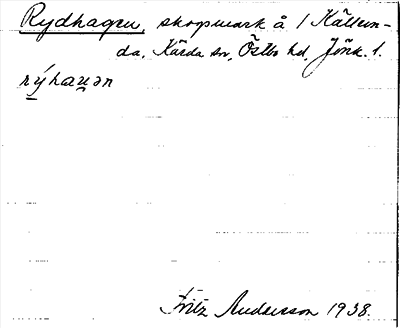 Rydhagen, skogsmark å 1 Källun-
da, Kärda sn, Östbo hd, Jönk. l.
rýhaųən
Fritz Andersson 1938.